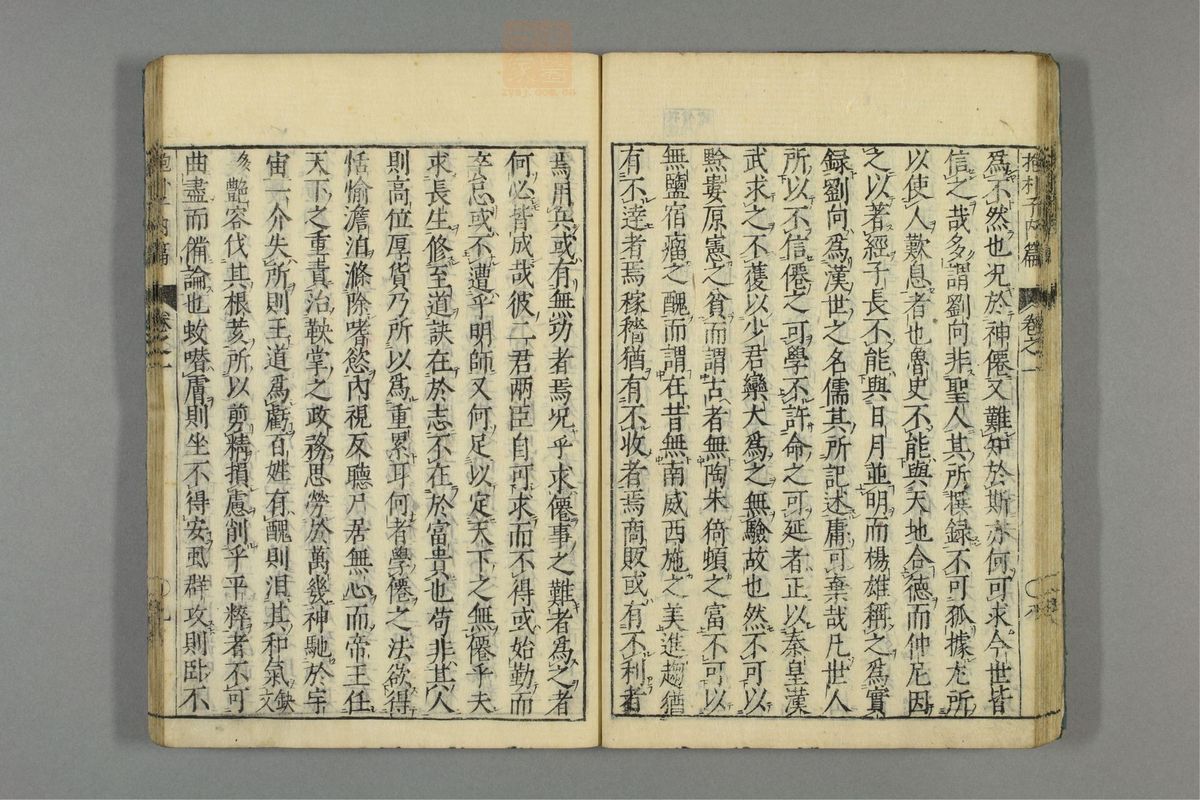 抱朴子內篇
卷之一
為不然也况於神僊又難知於斯亦何可求今世皆
信之哉多謂劉向非聖人其所撰録不可孤據尤所
以使人歎息者也魯史不能與天地合德而仲尼因
之以著經子長不能與日月並明而楊雄稱之爲實
録劉向爲漢世之名儒其所記述庸可棄哉凡世人
所以不信僊之可學不許命之可延者正以秦皇漢
武求之不獲以少君欒大爲之無驗故也然不可以
黔婁原憲之貧而謂古者無陶朱猗頓之富不可以
無鹽宿瘤之醜而謂在昔無南威西施之美進趨猶
有不達者焉稼穡猶有不收者焉商販或有不利者
焉用兵或有無功者焉况乎求僊事之難者爲之者
何必皆成哉彼二君兩臣自可求而不得或始勤而
卒怠或不遭乎明師又何足以定天下之無僊乎夫
求長生修至道訣在於志不在於富貴也苟非其人
則高位厚貨乃所以爲重累耳何者學僊之法欲得
恬愉澹泊滌除嗜慾內視反聽尸居無心而帝王任
天下之重責治鞅掌之政務思勞於萬幾神馳於宇
宙一介失所則王道爲虧百姓有醜則泪其和氣缺文
艷容伐其根荄所以剪精損慮削乎平粹者不可
曲盡而備論也蚊噆膚則坐不得安虱群攻則卧不
抱朴子內篇
卷之一